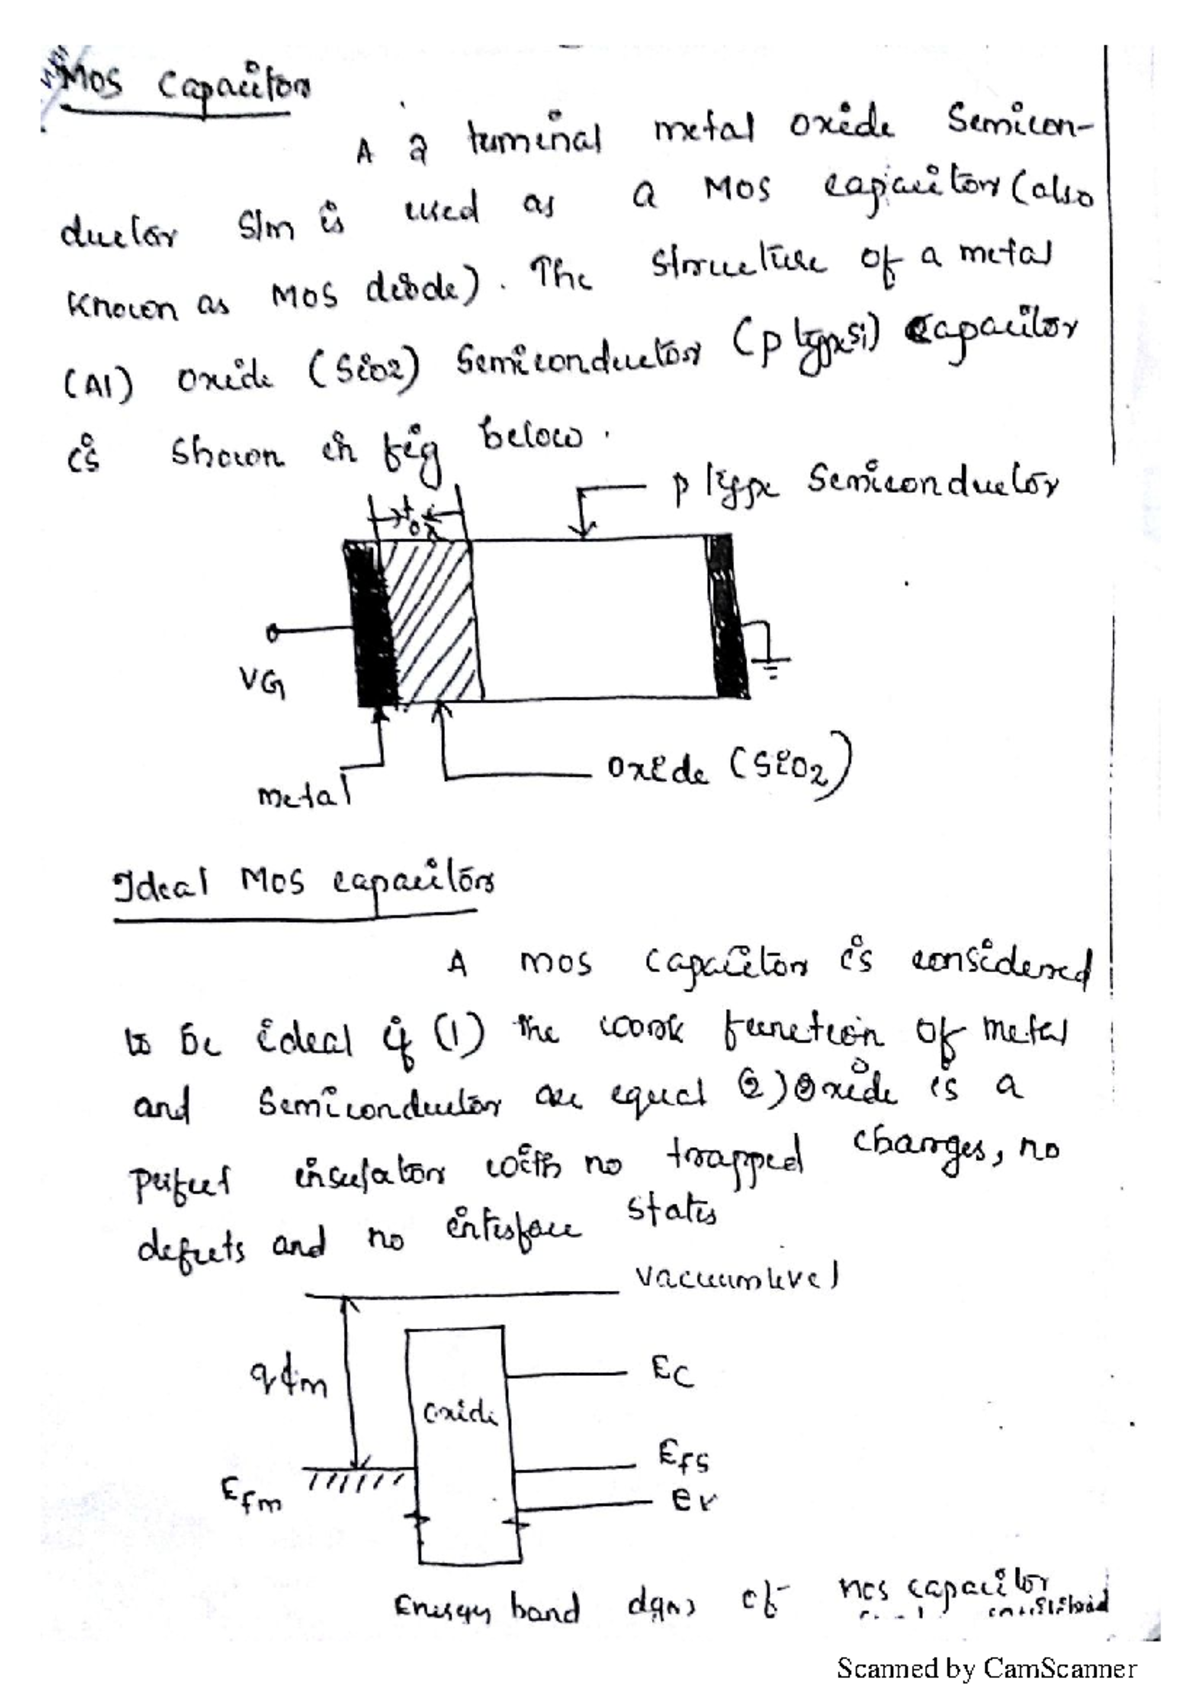 MOS Capacitor
A 2 terminal metal oxide Semicon-
ductor S/m is used as a MOS capacitor (also
known as MOS diode). The structure of a metal
(Al) oxide (SiO2) Semiconductor (p type Si) Capacitor
is shown in fig below.
p type Semiconductor
tox
VG
metal
oxide (SiO2)
Ideal MOS capacitor
A MOS capacitor is considered
to be ideal if (1) the work function of metal
and Semiconductor are equal (2) Oxide is a
perfect insulator with no trapped charges, no
defects and no interface states
vacuum level
qϕm
EC
oxide
Efs
Efm
ev
Energy band dgm of mos capacitor
Scanned by CamScanner